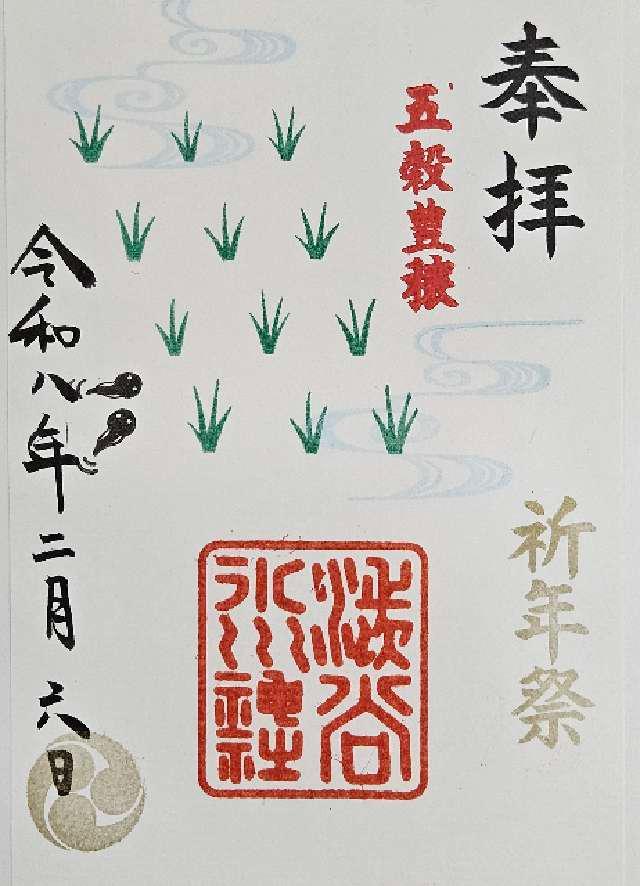 奉拝
五穀豊穣
祈年祭
渋谷
氷川
神社
令和八年二月六日